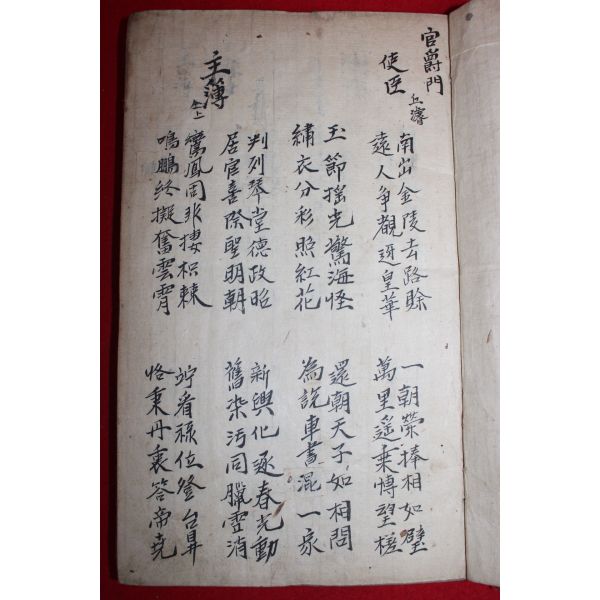 官爵門
使臣 丘濬
南出金陵去路賒
遠人爭觀迓皇華
一朝榮捧相如璧
萬里遙乘博望槎
玉節搖光驚海怪
繡衣分彩照紅花
還朝天子如相問
為說車書混一家
主簿 仝上
判列琴堂德政昭
居官喜際聖明朝
新興化逐春光動
舊染汚同臘雪消
鸞鳳固非捿枳棘
鳴鵬終擬奮雲霄
竚看祿位登台昇
恪秉丹衷答帝堯